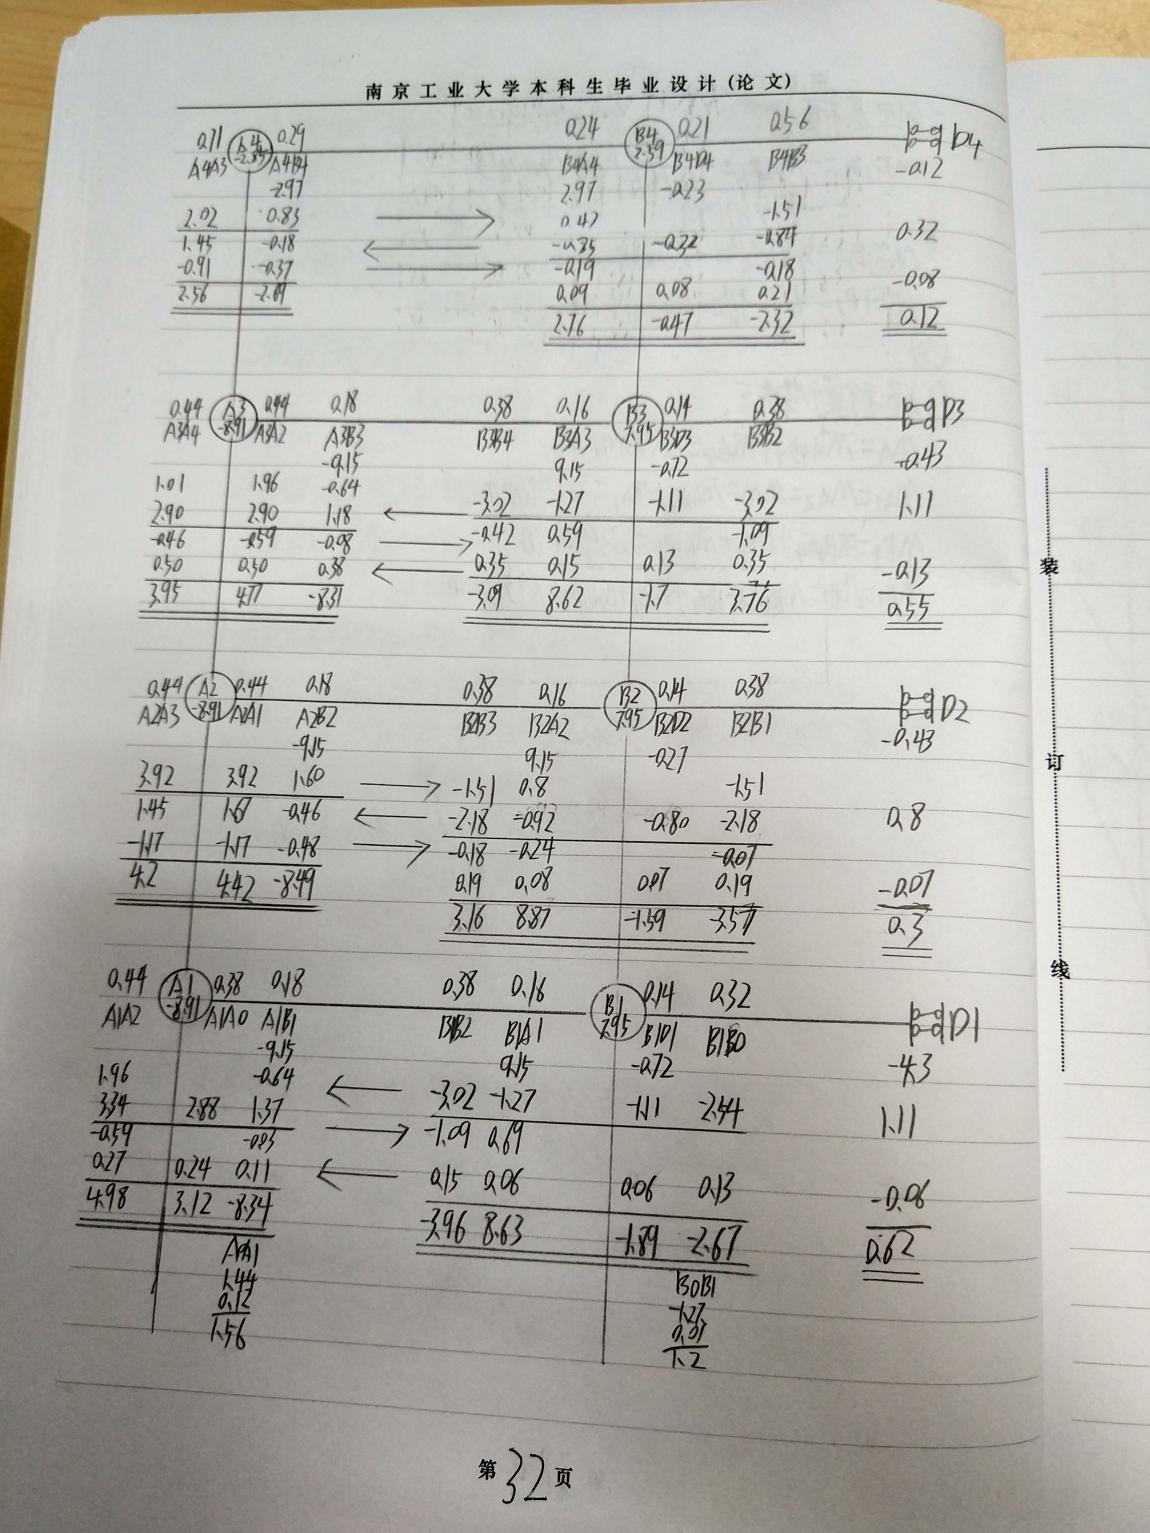 南京工业大学本科生毕业设计(论文)
0.71 A4 0.29 0.24 B4 0.21 0.56 D4
A4A3 A4B4 B4A4 2.59 B4D4 B4B3 -0.12
-2.97 2.97 -0.23
2.02 0.83 0.42 -1.51
1.45 -0.18 -0.85 -0.32 -0.84 0.32
-0.91 -0.37 -0.19 -0.18
2.56 -2.69 0.09 0.08 0.21 -0.08
2.76 -0.47 -2.32 0.12
0.44 A3 0.44 0.18 0.38 0.16 B3 0.14 0.38 D3
A3A4 -8.91 A3A2 A3B3 B3B4 B3A3 7.95 B3D3 B3B2
-9.15 9.15 -0.72 -0.43
1.01 1.96 -0.64
2.90 2.90 1.18 -3.02 -1.27 -1.11 -3.02 1.11
-0.46 -0.59 -0.08 -0.42 0.59 -1.09
0.50 0.50 0.38 0.35 0.15 0.13 0.35 -0.13
3.95 4.77 -8.31 -3.09 8.62 -1.7 3.76 0.55
0.44 A2 0.44 0.18 0.38 0.16 B2 0.14 0.38 D2
A2A3 -8.91 A2A1 A2B2 B2B3 B2A2 7.95 B2D2 B2B1 -0.43
-9.15 9.15 -0.27
3.92 3.92 1.60 -1.51 0.8 -1.51
1.45 1.67 -0.46 -2.18 -0.92 -0.80 -2.18 0.8
-1.17 -1.17 -0.48 -0.18 -0.24 -0.07
4.2 4.42 -8.49 0.19 0.08 0.07 0.19 -0.07
3.16 8.87 -1.59 -3.57 0.3
0.44 A1 0.38 0.18 0.38 0.16 B1 0.14 0.32 D1
A1A2 -8.91 A1A0 A1B1 B1B2 B1A1 7.95 B1D1 B1B0
-9.15 9.15 -0.72 -4.3
1.96 -0.64
3.34 2.88 1.37 -3.02 -1.27 -1.11 -2.54 1.11
-0.59 -0.03 -1.09 0.69
0.27 0.24 0.11 0.15 0.06 0.06 0.13 -0.06
4.98 3.12 -8.34 -3.96 8.63 -1.89 -2.67 0.62
A0A1 B0B1
1.44 -1.27
0.12 0.07
1.56 1.2
装
订
线
第32页